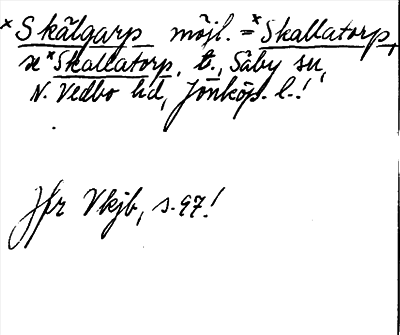 *Skälgarp möjl. = *Skallatorp,
se *Skallatorp, t., Säby sn,
N. Vedbo hd, Jönköp. l.!
Jfr Vkjb, s. 97!